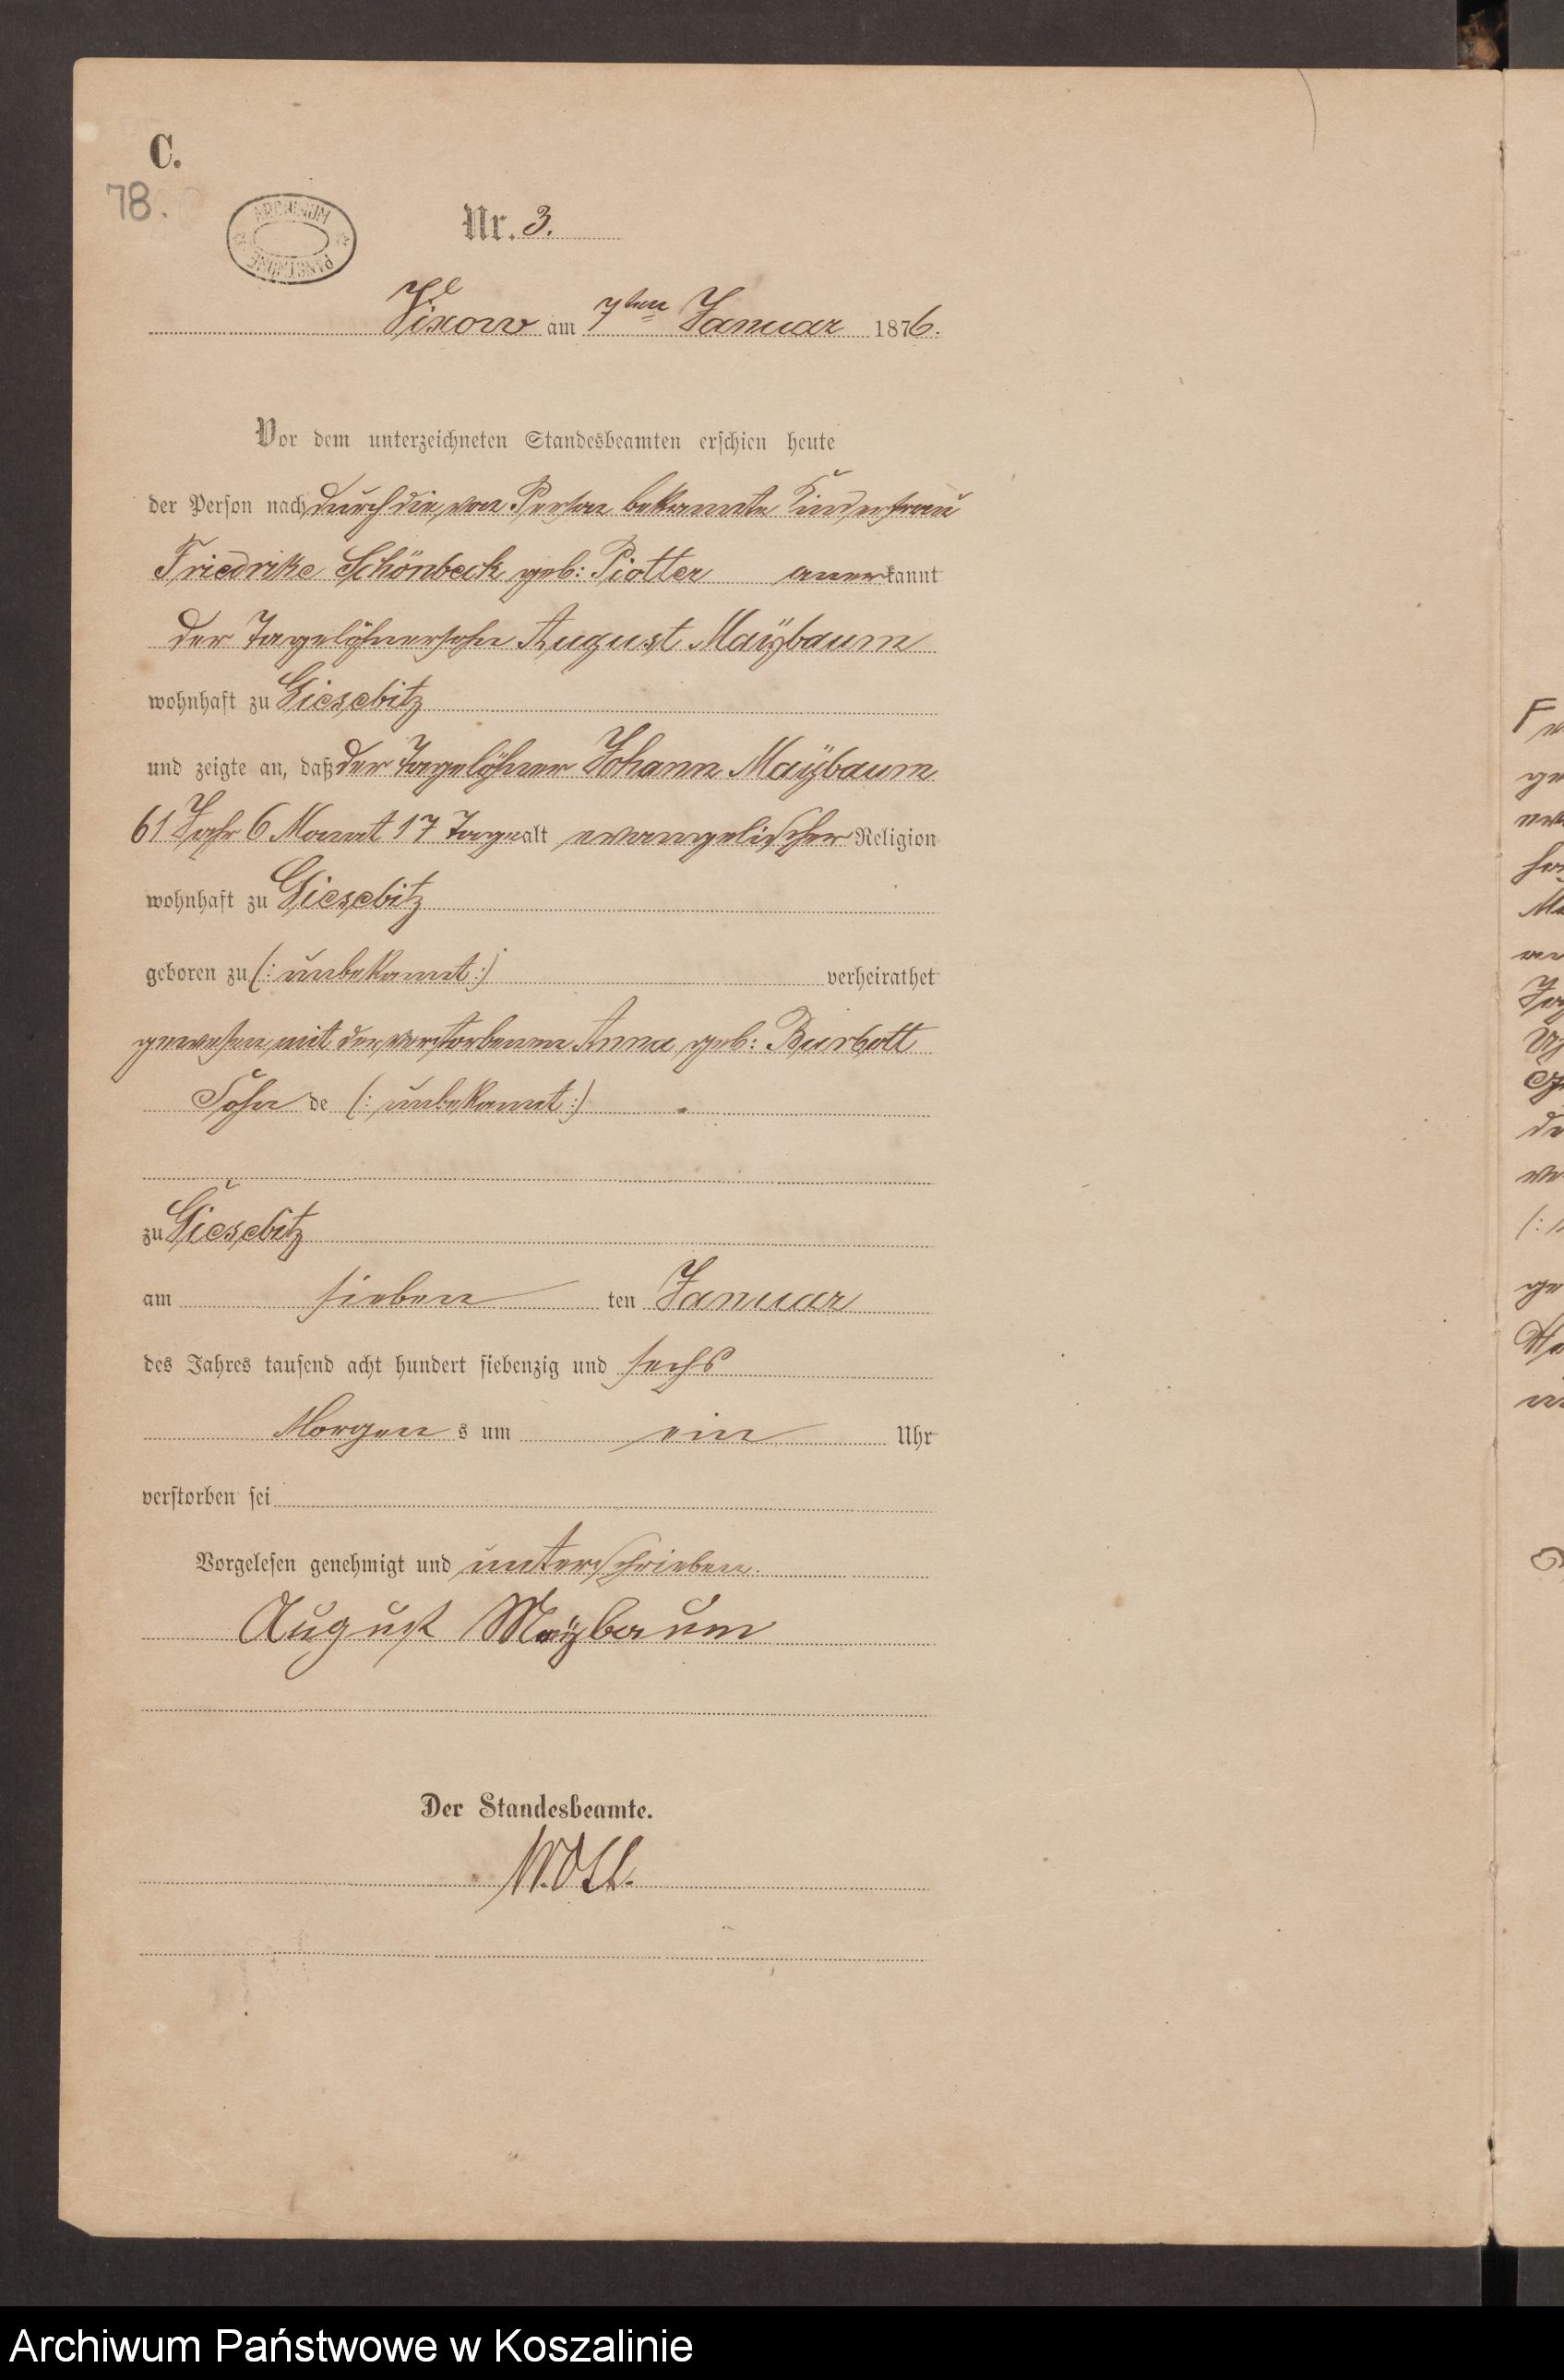 C.
78.
ARCHIWUM PAŃSTWOWE
Nr. 3.
Vixow am 7ten Januar 1876.
Vor dem unterzeichneten Standesbeamten erschien heute
der Person nach durch die, von Person bekannte Kinderfrau
Friedrike Schönbeck geb: Piotter anerkannt
der Tagelöhnersohn August Maÿbaum
wohnhaft zu Giesebitz
und zeigte an, daß der Tagelöhner Johann Maÿbaum
61 Jahr 6 Monat 17 Tage alt evangelischer Religion
wohnhaft zu Giesebitz
geboren zu (: unbekannt :) verheirathet
gewesen mit der verstorbenen Anna geb: Burbott
Sohn de (: unbekannt :)
zu Giesebitz
am sieben ten Januar
des Jahres tausend acht hundert siebenzig und sechs
Morgen s um ein Uhr
verstorben sei
Vorgelesen genehmigt und unterschrieben.
August Maÿbaum
Der Standesbeamte.
Archiwum Państwowe w Koszalinie